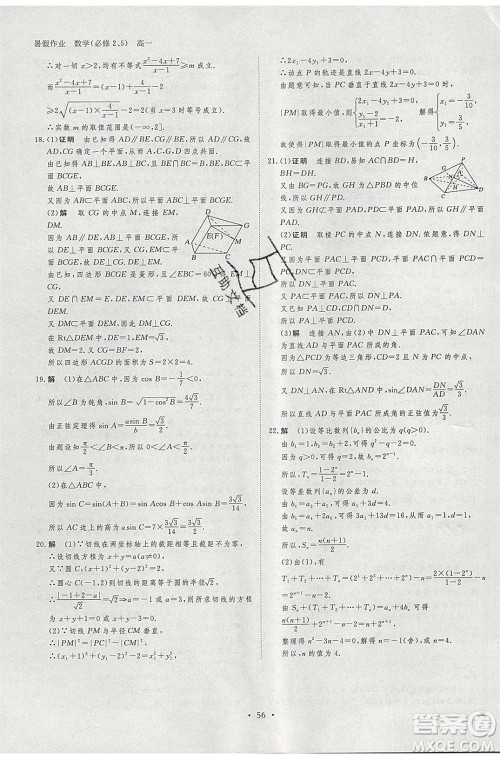 暑假作业 数学(必修2、5) 高一
∴对一切x>2,均有不等式(x²-4x+7)/(x-1)≥m成立.
∴实数m的取值范围是(-∞,2].
18.(1)证明 由已知得AD∥BE,CG∥BE,所以AD∥CG,故
AD,CG确定一个平面,从而A,C,G,D四点共面.
由已知得AB⊥BE,AB⊥BC,且BE∩BC=B,
故AB⊥平面BCGE.
又因为AB⊂平面ABC,
所以平面ABC⊥平面BCGE.
(2)解 取CG的中点M,连接EM,DM.
因为AB∥DE,AB⊥平面BCGE,
所以DE⊥平面BCGE,故DE⊥CG.
由已知,四边形BCGE是菱形,且∠EBC=60°
又因为DE∩EM=E,DE,EM⊂平面DEM,
故CG⊥平面DEM.
又DM⊂平面DEM,因此DM⊥CG.
在Rt△DEM中,DE=1,EM=√3,
故DM=2.
又CG=BF=2,
所以四边形ACGD的面积为S=2×2=4.
19.解 (1)在△ABC中,因为cos B=-1/7,
所以∠B为钝角,sin B=√(1-cos²B)=4√3/7.
由正弦定理得sin A=(a sin B)/b=√3/2.
由题设知π/2<∠B<π,所以0<∠A<π/2.
所以∠A=π/3.
(2)在△ABC中,
因为sin C=sin(A+B)=sin Acos B+cos Asin B=3√3/14,
所以AC边上的高为asin C=7×3√3/14=3√3/2.
20.解 (1)∵切线在两坐标轴上的截距相等且截距不为零,
∴设切线方程为x+y=a(a≠0).
又∵圆心C(-1,2)到切线的距离等于圆的半径√2,
∴|-1+2-a|/√2=√2⇒a=-1或a=3.
则所求切线的方程为x+y+1=0或x+y-3=0.
(2)∵切线PM与半径CM垂直,
∴|PM|²=|PC|²-|CM|².
∴(x₁+1)²+(y₁-2)²-2=x₁²+y₁².
∴2x₁-4y₁+3=0.
∴点P的轨迹是直线2x-4y+3=0.
由题意知|PM|取最小值时,OP垂直于直线2x-4y+3=0,
∴|PM|取得最小值时,点P的坐标为(-3/10,3/5).
21.(1)证明 连接BD,易知AC∩BD=H,
BH=DH.
又由BG=PG,故GH∥PD.
又因为GH⊄平面PAD,PD⊂平面PAD,
所以GH∥平面PAD.
(2)证明 取棱PC的中点N,连接DN.
依题意,得DN⊥PC,
又因为平面PAC⊥平面PCD,
平面PAC∩平面PCD=PC,
所以DN⊥平面PAC.
又PA⊂平面PAC,所以DN⊥PA.
又已知PA⊥CD,CD∩DN=D,
所以PA⊥平面PCD.
(3)解 连接AN,由(2)中DN⊥平面PAC,可知∠DAN为
直线AD与平面PAC所成的角.
因为△PCD为等边三角形,CD=2且N为PC的中点,
所以DN=√3.
又DN⊥AN,在Rt△AND中,sin∠DAN=DN/AD=√3/3.
所以,直线AD与平面PAC所成角的正弦值为√3/3.
22.解 (1)设等比数列{bₙ}的公比为q(q>0).
由b₁=1,b₃=b₂+2,可得q²-q-2=0.
因为q>0,可得q=2,故bₙ=2ⁿ⁻¹.
所以,Tₙ=(1-2ⁿ)/(1-2)=2ⁿ-1.
设等差数列{aₙ}的公差为d.
由b₄=a₃+a₅,可得a₁+3d=4.
由b₅=a₄+2a₆,可得3a₁+13d=16,从而a₁=1,d=1,故aₙ=n.
所以,Sₙ=n(n+1)/2.
(2)由(1),有
T₁+T₂+…+Tₙ=(2¹+2²+…+2ⁿ)-n=2×(1-2ⁿ)/(1-2)-n=2ⁿ⁺¹-n-2.
由Sₙ+(T₁+T₂+…+Tₙ)=aₙ+4bₙ可得
n(n+1)/2+2ⁿ⁺¹-n-2=n+2ⁿ⁺¹,
整理得n²-3n-4=0,解得n=-1(舍),或n=4.
所以,n的值为4.
56